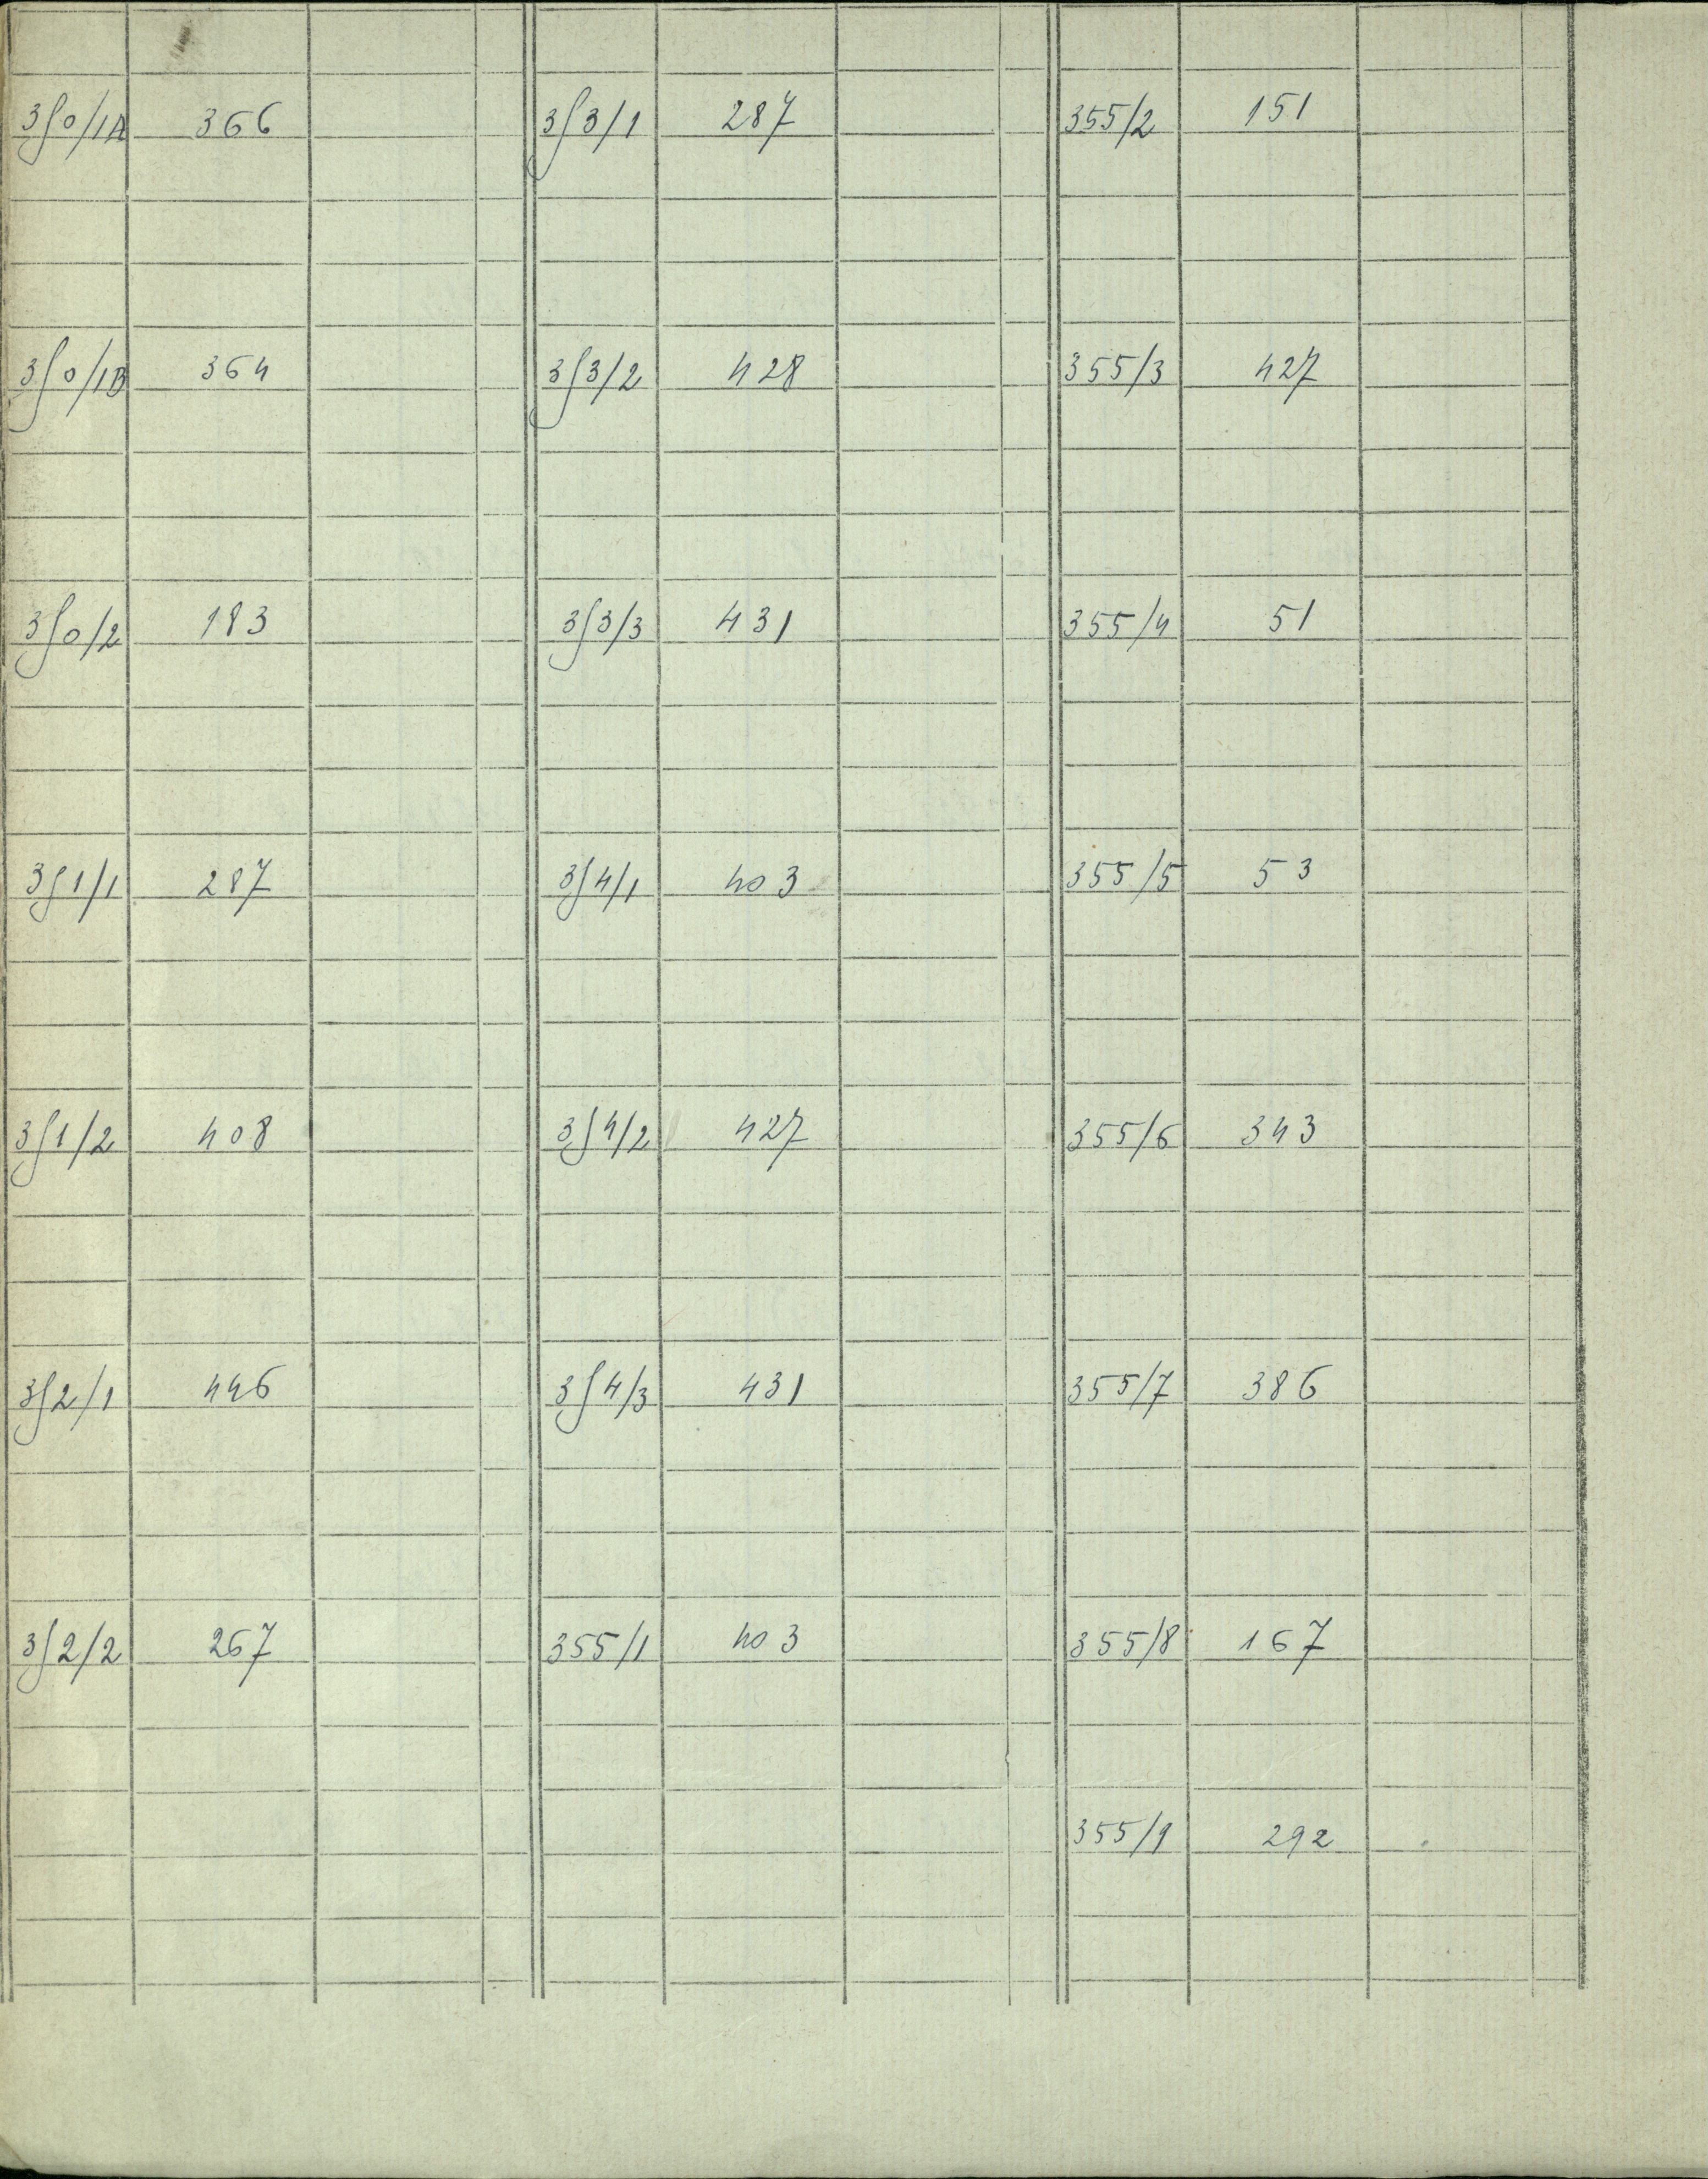 350/1A 366
350/1B 364
350/2 183
351/1 287
351/2 408
352/1 446
352/2 267
353/1 287
353/2 428
353/3 431
354/1 403
354/2 427
354/3 431
355/1 403
355/2 151
355/3 427
355/4 51
355/5 53
355/6 343
355/7 386
355/8 167
355/9 292